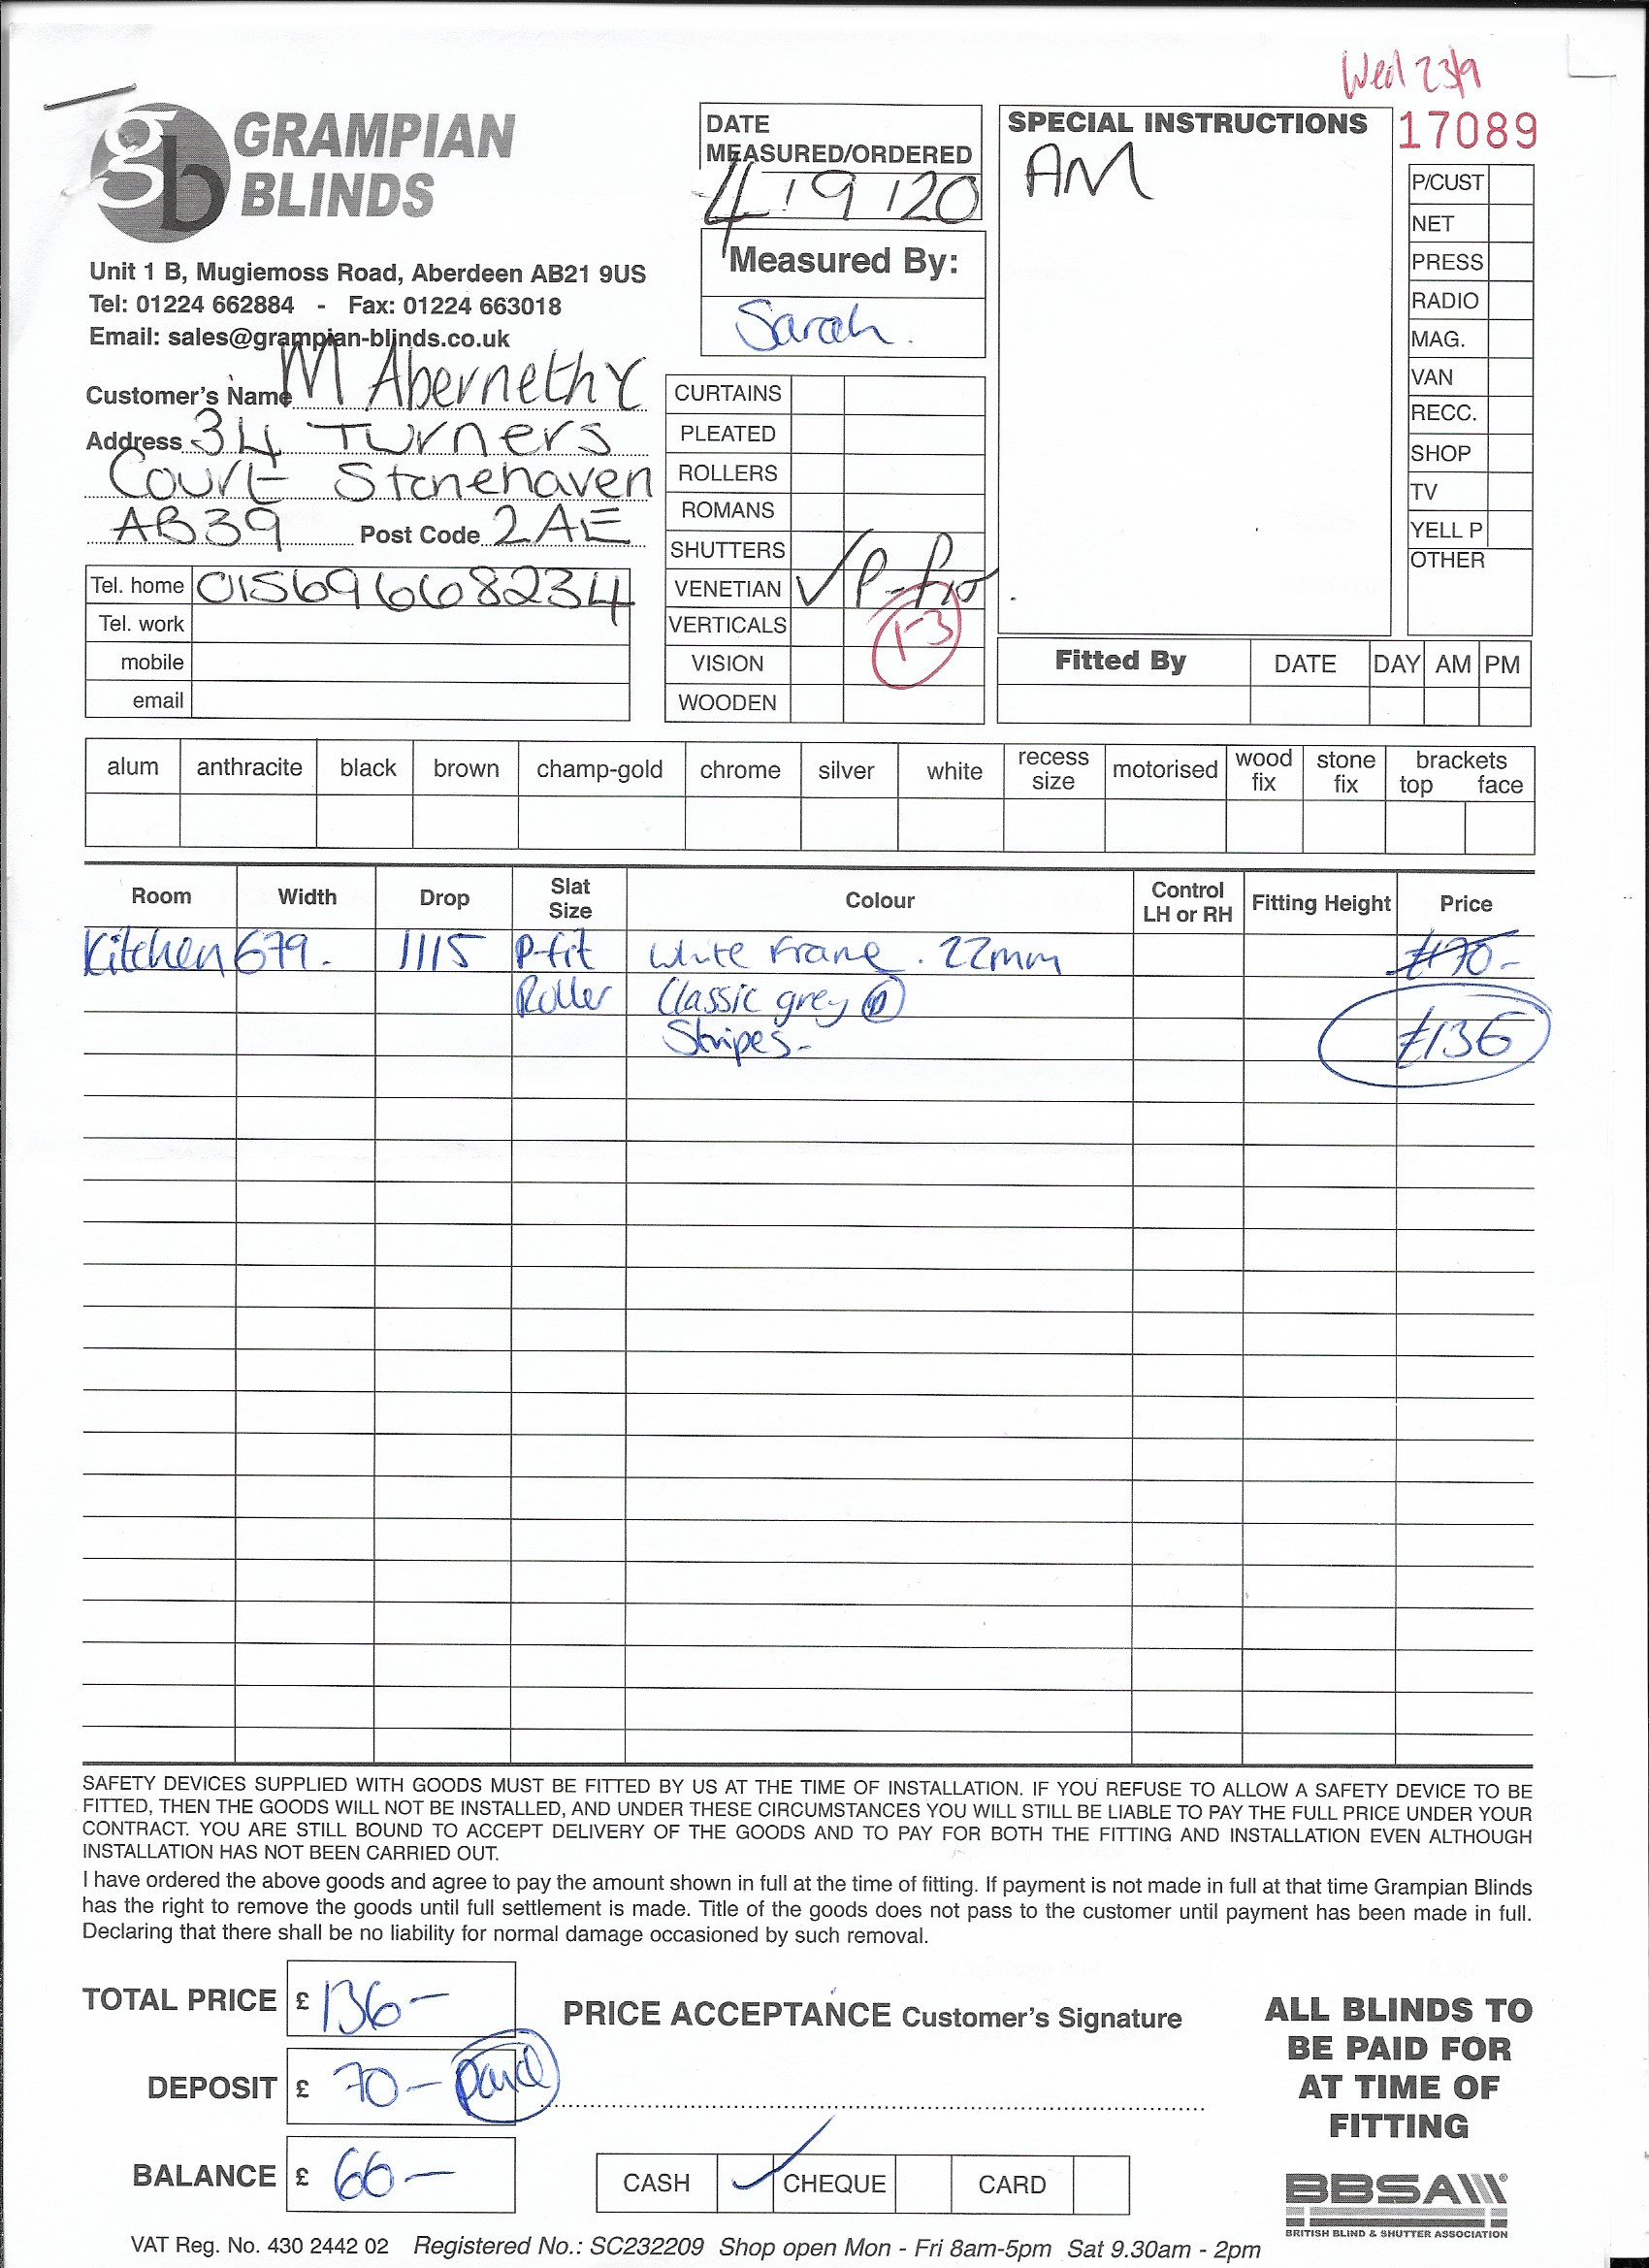 Wed 23/9
GRAMPIAN
BLINDS
Unit 1 B, Mugiemoss Road, Aberdeen AB21 9US
Tel: 01224 662884 - Fax: 01224 663018
Email: sales@grampian-blinds.co.uk
DATE
MEASURED/ORDERED
4 19 120
Measured By:
Sarah.
SPECIAL INSTRUCTIONS
AM
17089
P/CUST
NET
PRESS
RADIO
MAG.
VAN
RECC.
SHOP
TV
YELL P
OTHER
Customer's Name M Abernethy
Address 34 Turners
Court Stonehaven
AB39 Post Code 2AE
Tel. home 01569668234
Tel. work
mobile
email
CURTAINS
PLEATED
ROLLERS
ROMANS
SHUTTERS
VENETIAN ✓ P-fit
VERTICALS 1-3
VISION
WOODEN
Fitted By DATE DAY AM PM
alum anthracite black brown champ-gold chrome silver white recess size motorised wood fix stone fix brackets top face
Room Width Drop Slat Size Colour Control LH or RH Fitting Height Price
Kitchen 679. 1115 P-fit White Frame. 22mm £70-
Roller Classic grey
Stripes- £136
SAFETY DEVICES SUPPLIED WITH GOODS MUST BE FITTED BY US AT THE TIME OF INSTALLATION. IF YOU REFUSE TO ALLOW A SAFETY DEVICE TO BE
FITTED, THEN THE GOODS WILL NOT BE INSTALLED, AND UNDER THESE CIRCUMSTANCES YOU WILL STILL BE LIABLE TO PAY THE FULL PRICE UNDER YOUR
CONTRACT. YOU ARE STILL BOUND TO ACCEPT DELIVERY OF THE GOODS AND TO PAY FOR BOTH THE FITTING AND INSTALLATION EVEN ALTHOUGH
INSTALLATION HAS NOT BEEN CARRIED OUT.
I have ordered the above goods and agree to pay the amount shown in full at the time of fitting. If payment is not made in full at that time Grampian Blinds
has the right to remove the goods until full settlement is made. Title of the goods does not pass to the customer until payment has been made in full.
Declaring that there shall be no liability for normal damage occasioned by such removal.
TOTAL PRICE £ 136-
DEPOSIT £ 70- paid
BALANCE £ 66-
PRICE ACCEPTANCE Customer's Signature
CASH ✓ CHEQUE CARD
ALL BLINDS TO
BE PAID FOR
AT TIME OF
FITTING
BBSA
BRITISH BLIND & SHUTTER ASSOCIATION
VAT Reg. No. 430 2442 02 Registered No.: SC232209 Shop open Mon - Fri 8am-5pm Sat 9.30am - 2pm